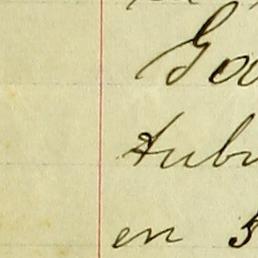 Go
Aubu
en 5